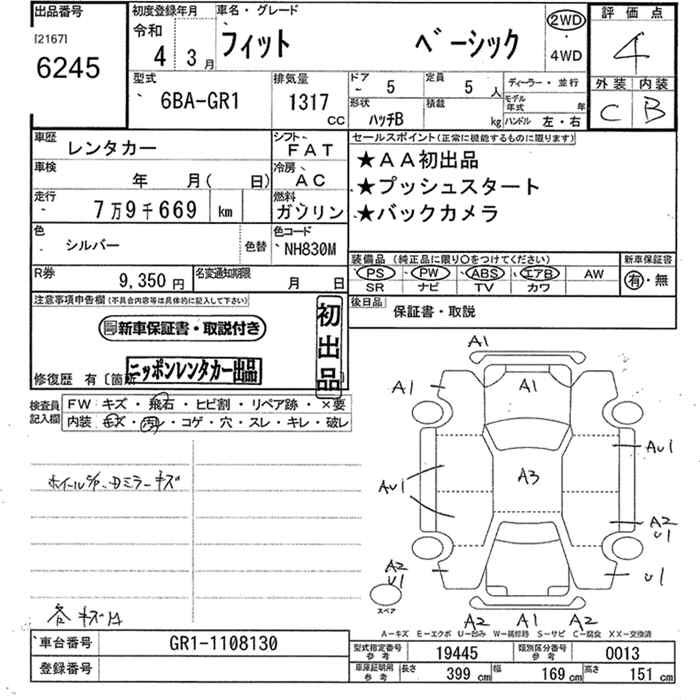 出品番号
[2167]
6245
初度登録年月
令和
4 3月
車名・グレード
フィット ベーシック
2WD
・
4WD
評価点
4
外装 内装
C B
型式
6BA-GR1
排気量
1317
CC
ドア
5
定員
5 人
ディーラー・並行
形状
ハッチB
積載
kg
モデル年式 年
ハンドル 左・右
車歴
レンタカー
シフト
FAT
車検
年 月( 日)
冷房
AC
走行
7万9千669 km
燃料
ガソリン
色
シルバー
色替
色コード
NH830M
R券
9,350 円
名変通知期限
月 日
セールスポイント(正常に機能するものに限ります)
★AA初出品
★プッシュスタート
★バックカメラ
装備品 (純正品に限り○をつけてください)
PS PW ABS エアB AW
SR ナビ TV カワ
新車保証書
有・無
後日品
保証書・取説
注意事項申告欄(不具合内容等は具体的に記入して下さい)
新車保証書・取説付き
初出品
ニッポンレンタカー出品
修復歴 有[箇所
検査員
記入欄
FW キズ・飛石・ヒビ割・リペア跡・×要
内装 キズ・汚レ・コゲ・穴・スレ・キレ・破レ
各キズ凹
A1
A1
A1
AU1
AU1
A3
A2
U1
A2
U1
U1
スペア
A2 A1 A2
A-キズ E-エクボ U-凹み W-補修跡 S-サビ C-腐食 XX-交換済
車台番号
GR1-1108130
登録番号
型式指定番号
参考
19445
類別区分番号
参考
0013
車庫証明用
参考
長さ 399 cm 幅 169 cm 高さ 151 cm